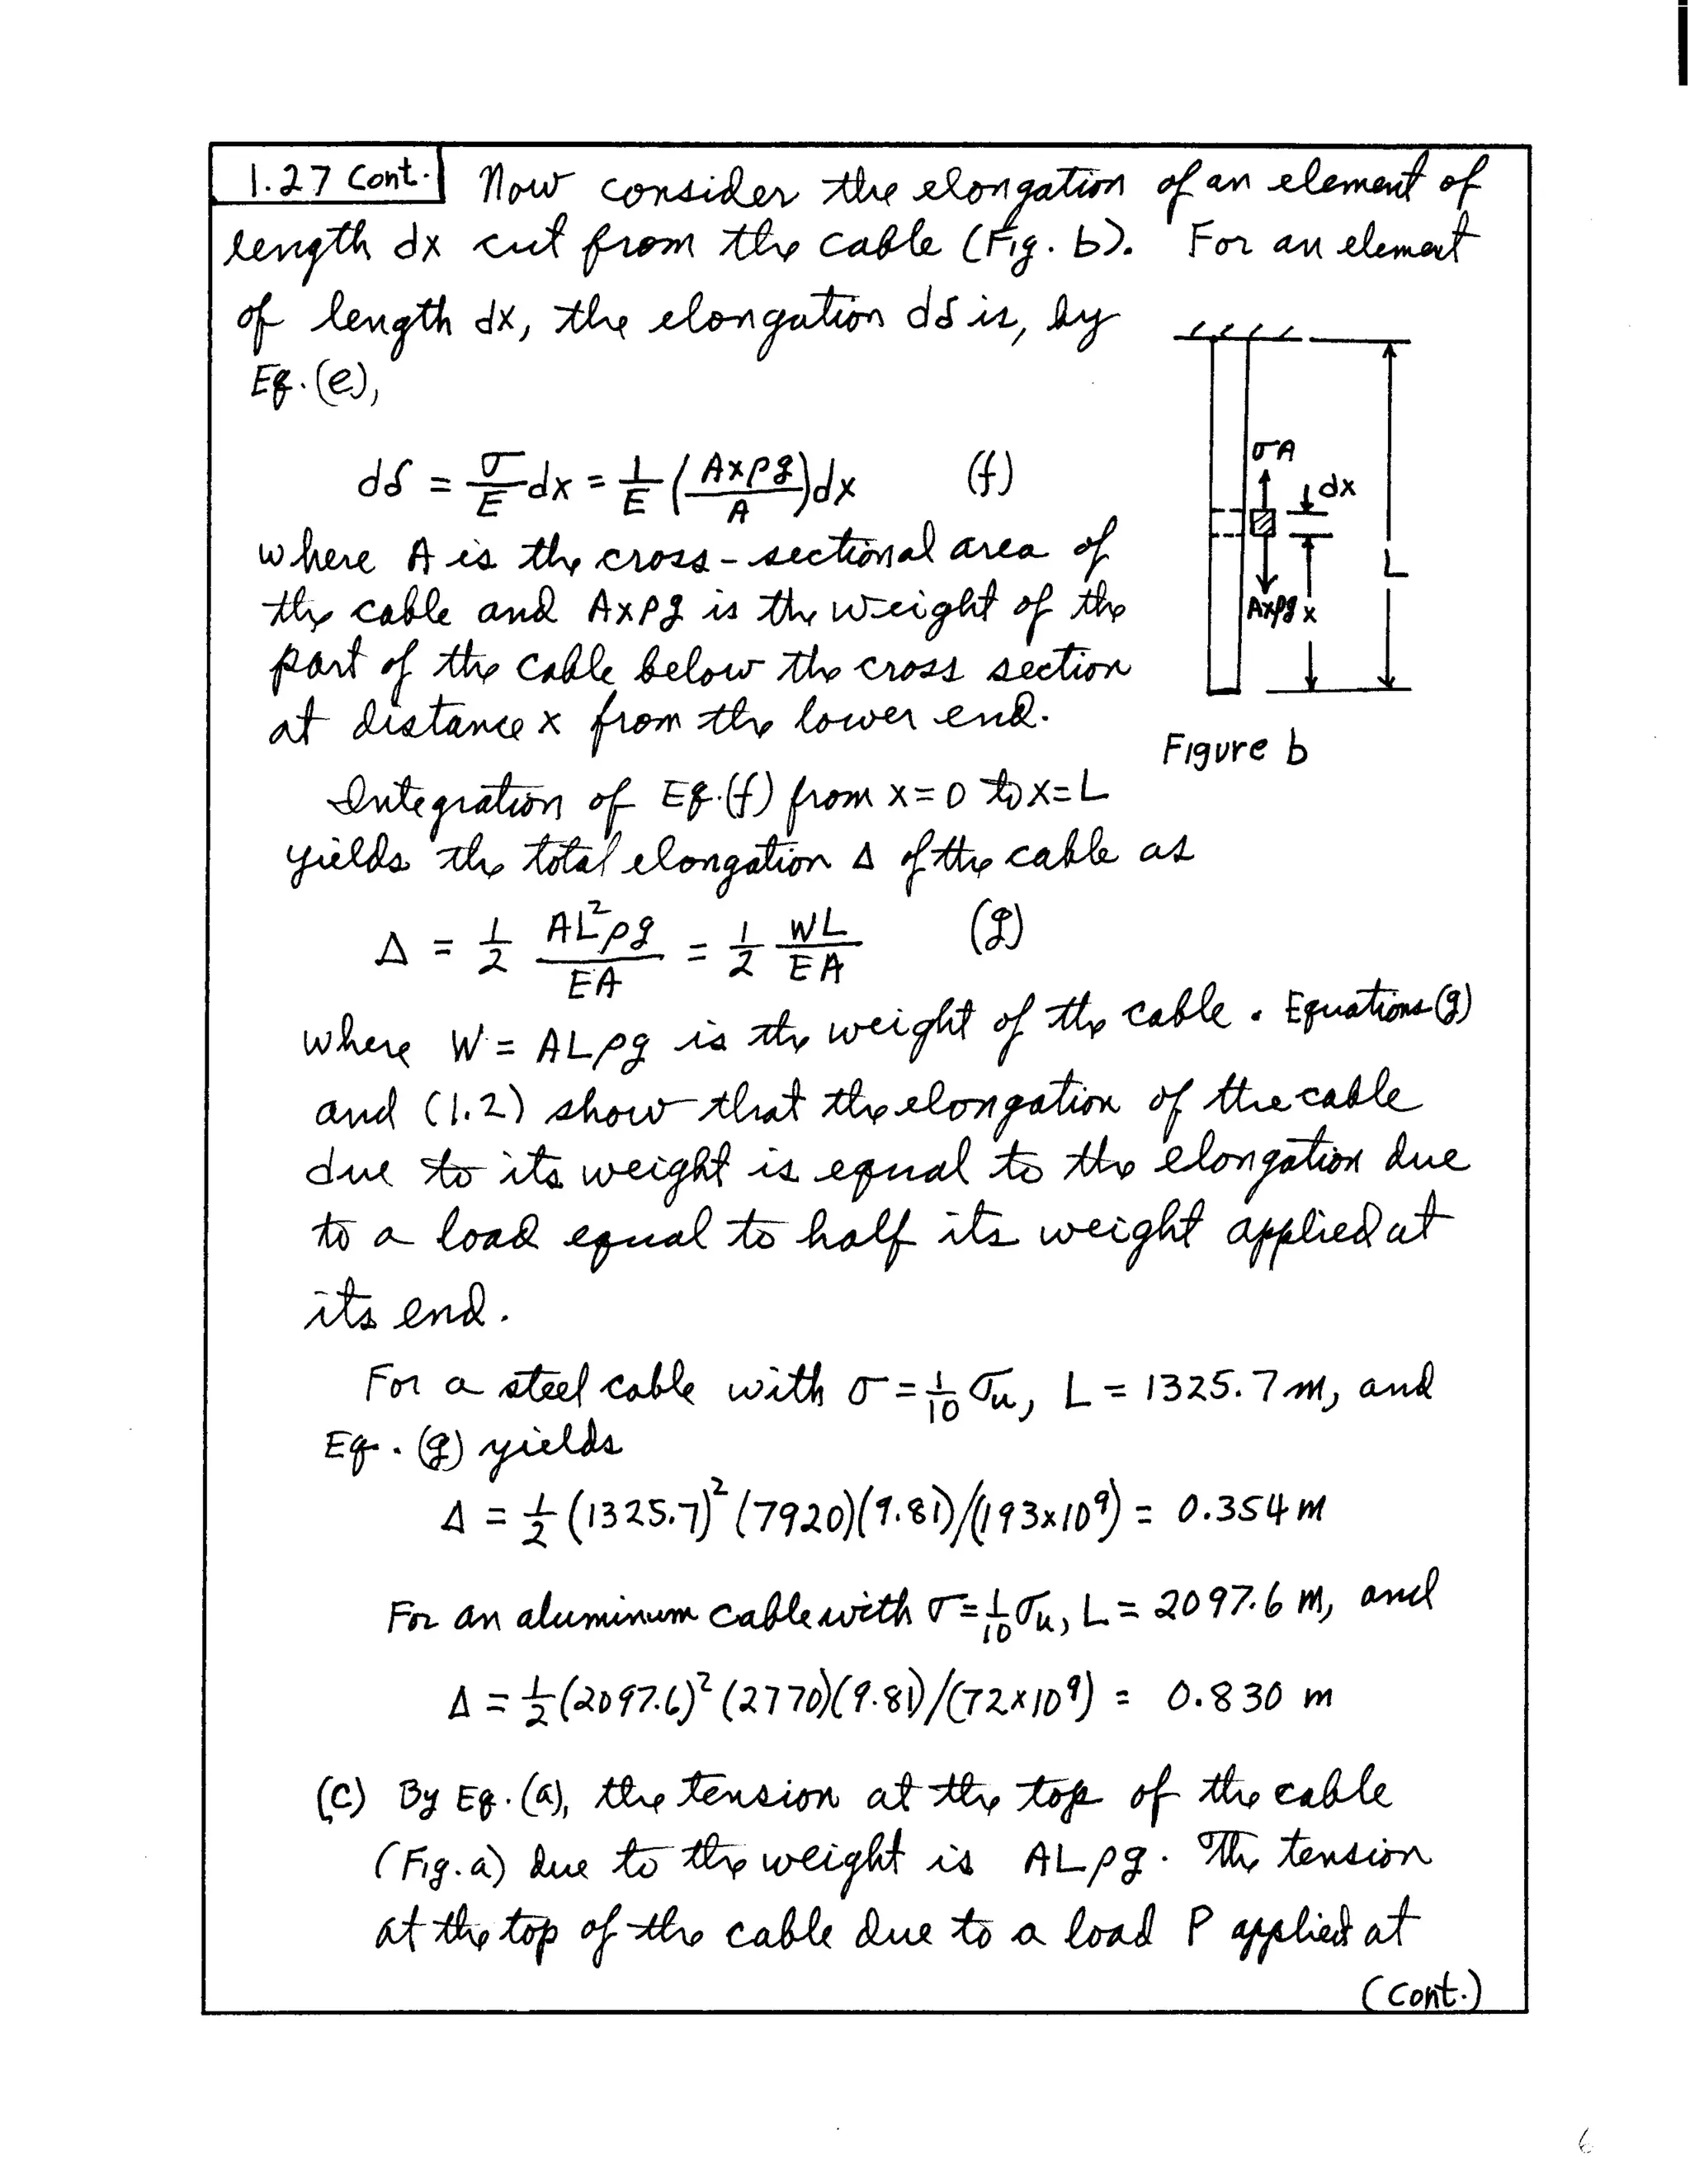 1.27 Cont. Now consider the elongation of an element of
length dx cut from the cable (Fig. b). For an element
of length dx, the elongation dδ is, by
Eq. (e),
dδ = σ/E dx = 1/E (Axρg/A) dx (f)
where A is the cross-sectional area of
the cable and Axρg is the weight of the
part of the cable below the cross section
at distance x from the lower end.
σA
dx
L
Axρg x
Figure b
Integration of Eq. (f) from x=0 to x=L
yields the total elongation Δ of the cable as
Δ = 1/2 AL²ρg/EA = 1/2 WL/EA (g)
where W = ALρg is the weight of the cable. Equations (g)
and (1.2) show that the elongation of the cable
due to its weight is equal to the elongation due
to a load equal to half its weight applied at
its end.
For a steel cable with σ = 1/10 σu, L = 1325.7 m, and
Eq. (g) yields
Δ = 1/2 (1325.7)² (7920)(9.81)/(193x10⁹) = 0.354 m
For an aluminum cable with σ = 1/10 σu, L = 2097.6 m, and
Δ = 1/2 (2097.6)² (2770)(9.81)/(72x10⁹) = 0.830 m
(c) By Eq. (a), the tension at the top of the cable
(Fig. a) due to the weight is ALρg. The tension
at the top of the cable due to a load P applied at
(Cont.)
6